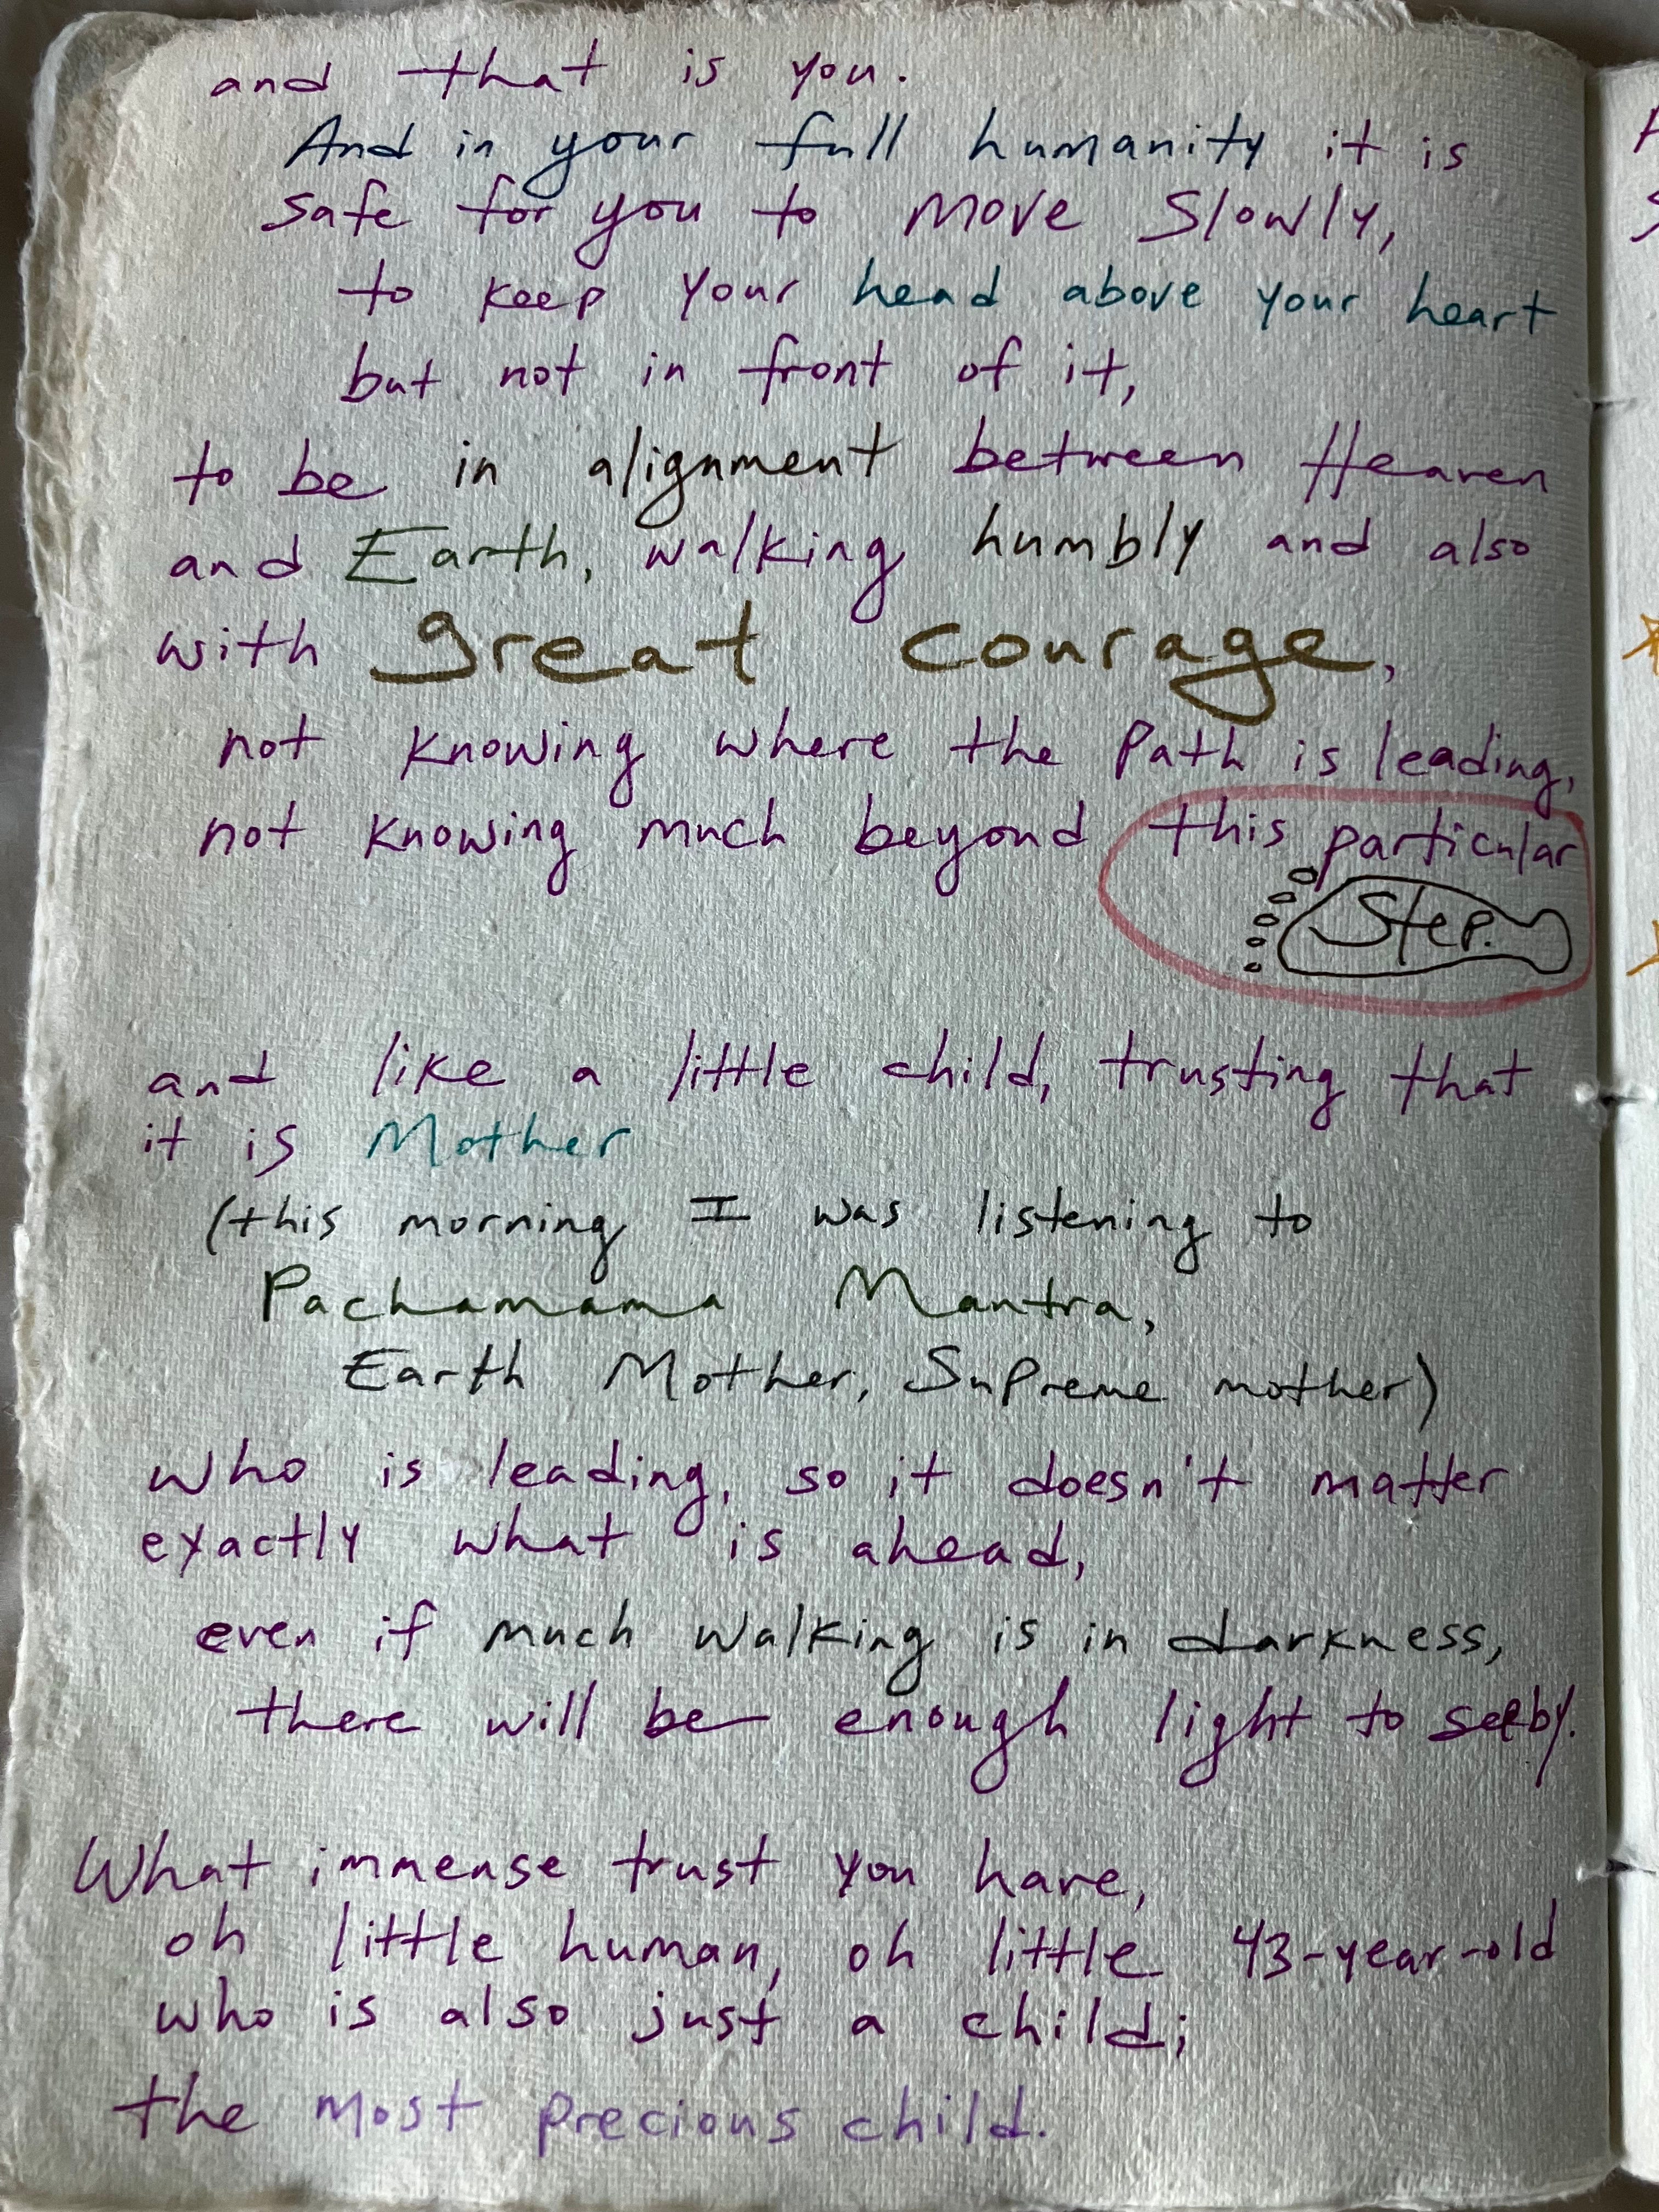 and that is you.
And in your full humanity it is
safe for you to move slowly,
to keep your head above your heart
but not in front of it,
to be in alignment between Heaven
and Earth, walking humbly and also
with great courage,
not knowing where the path is leading,
not knowing much beyond this particular
Step.
and like a little child, trusting that
it is Mother
(this morning I was listening to
Pachamama Mantra,
Earth Mother, Supreme mother)
who is leading, so it doesn't matter
exactly what is ahead,
even if much walking is in darkness,
there will be enough light to see by.
What immense trust you have,
oh little human, oh little 43-year-old
who is also just a child;
the most precious child.